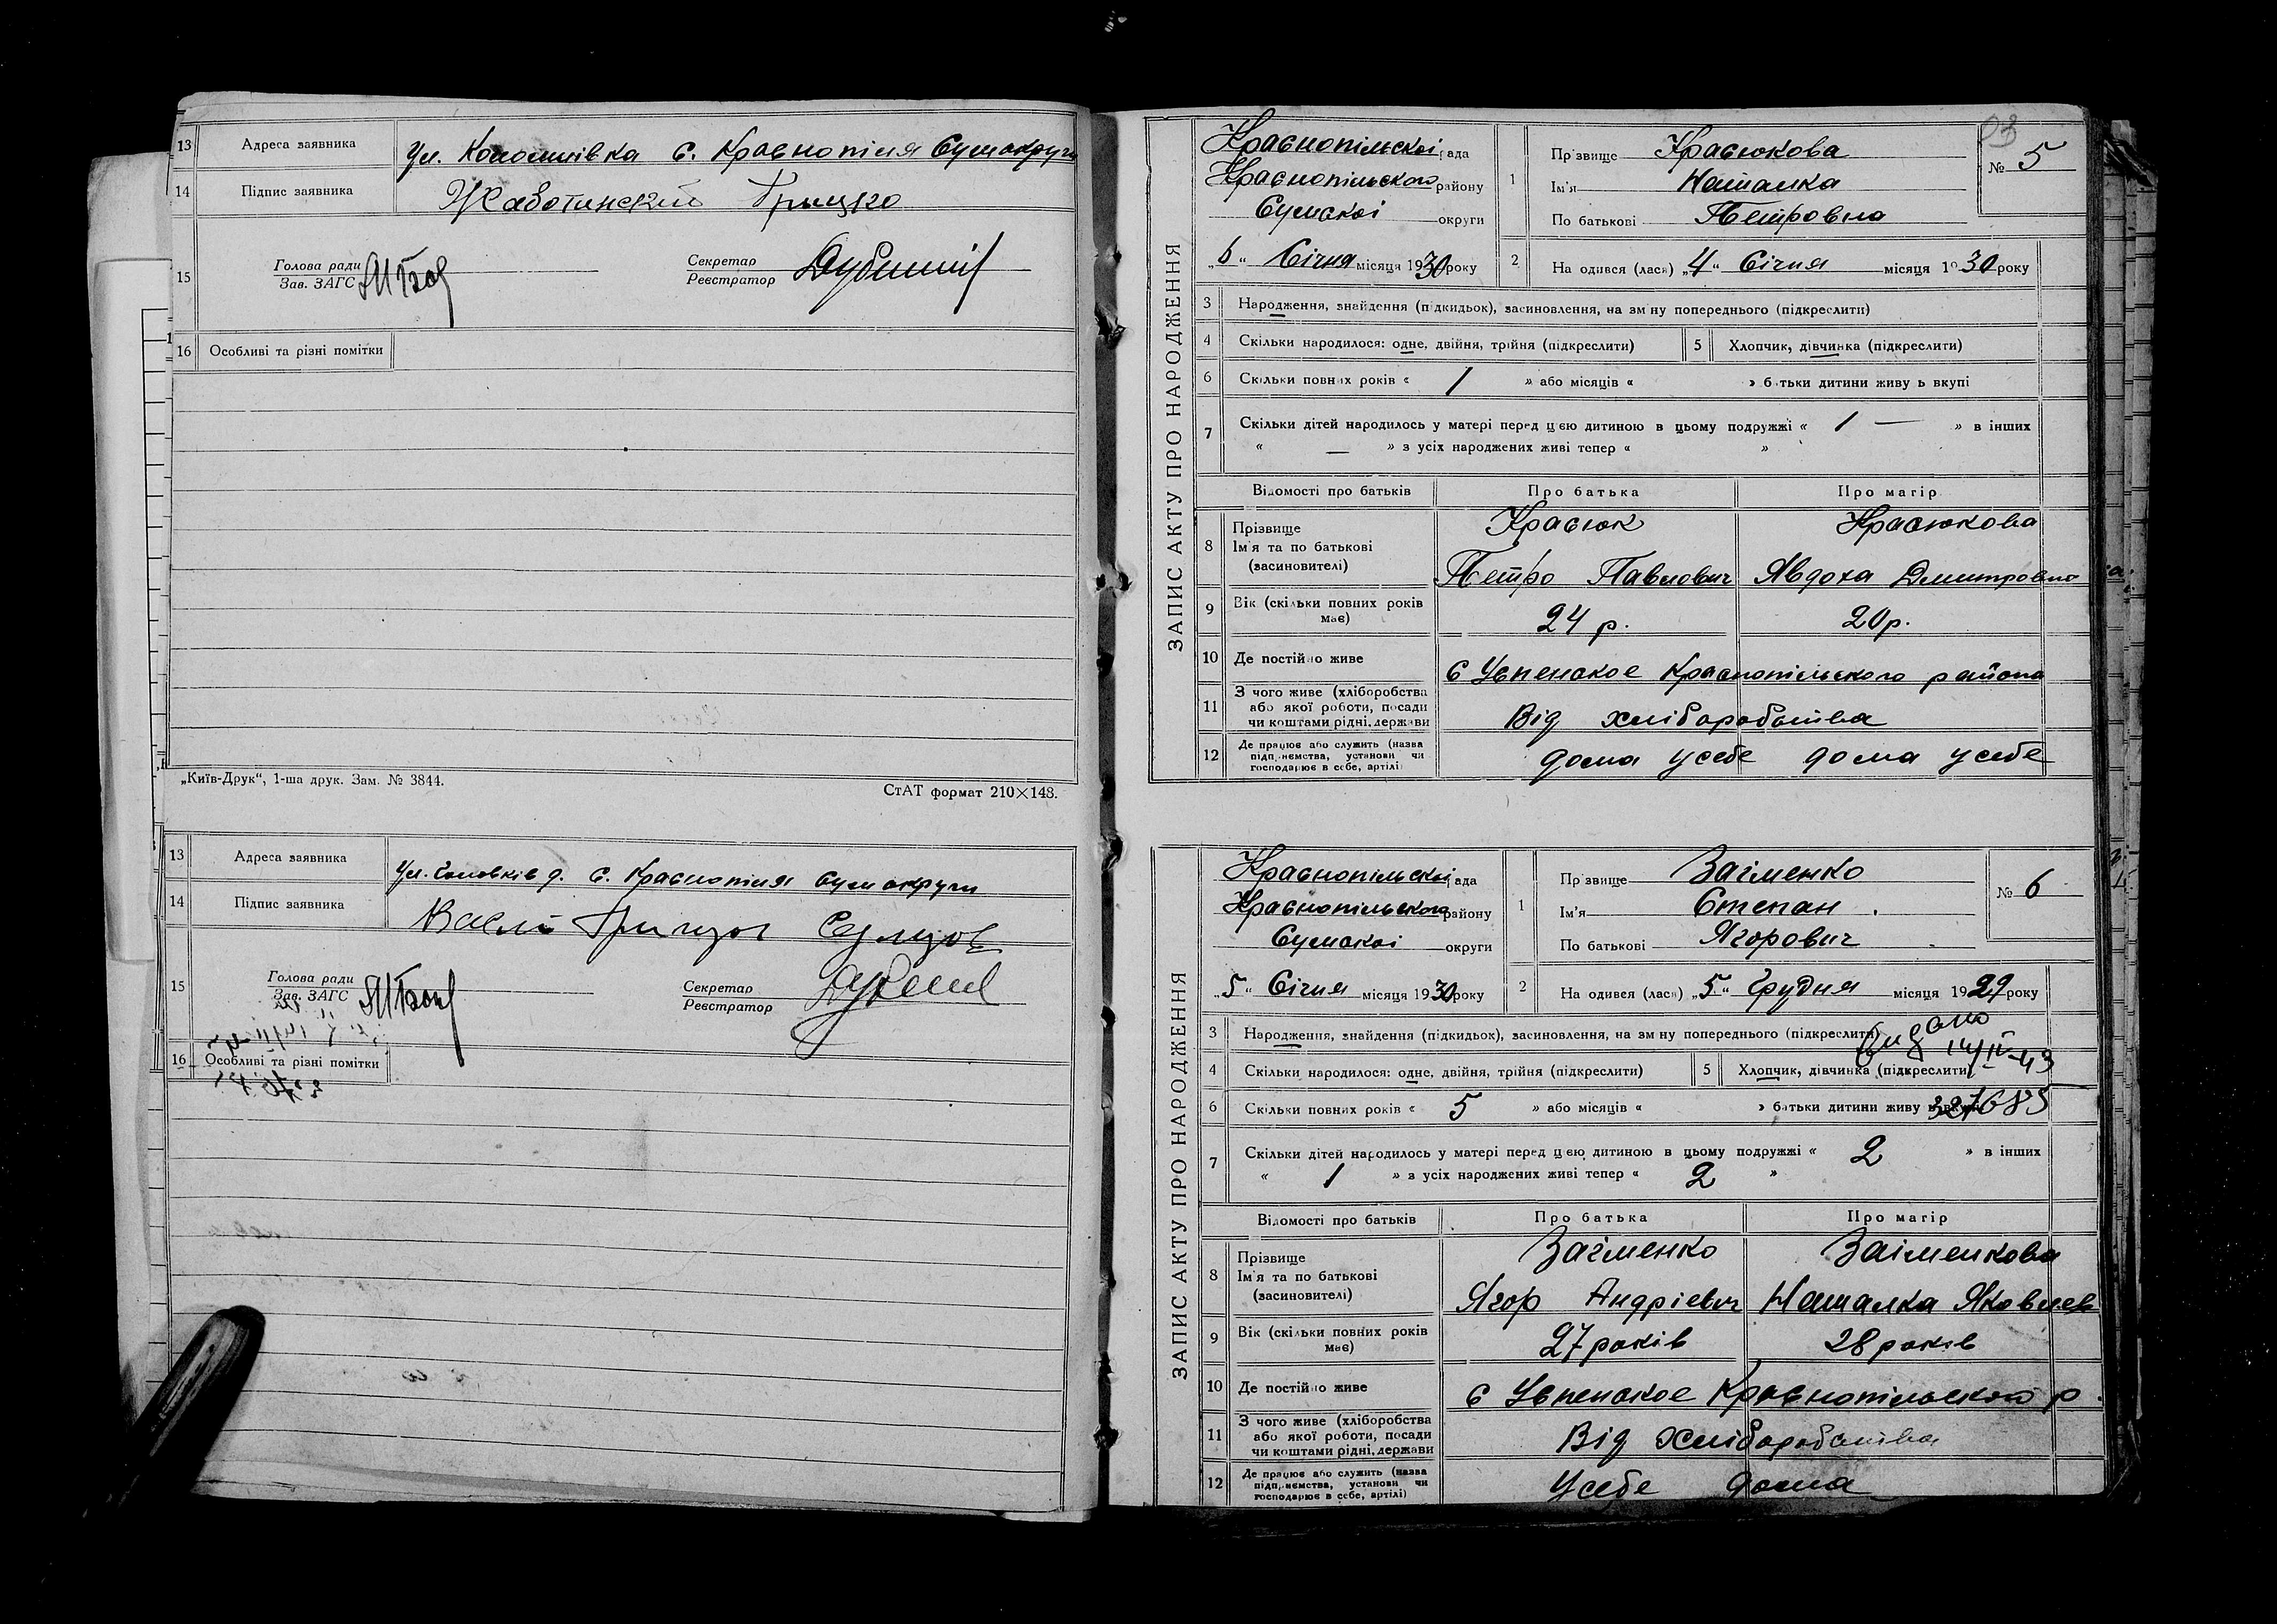 13 Адреса заявника Ул. Колошнівка С. Краснопілля Сумокруги
14 Підпис заявника Жаботинский Грыцко
15 Голова ради
Зав. ЗАГС
Секретар
Реєстратор
16 Особливі та різні помітки
„Київ-Друк“, 1-ша друк. Зам. № 3844.
СтАТ формат 210×148.
13 Адреса заявника С. Краснопілля Сумокруги
14 Підпис заявника
15 Голова ради
Зав. ЗАГС
Секретар
Реєстратор
16 Особливі та різні помітки
ЗАПИС АКТУ ПРО НАРОДЖЕННЯ
Краснопільскої рада
Краснопільского району
Сумскої округи
„6“ Січня місяця 1930 року
1 Прізвище Красюкова
Ім'я Наталка
По батькові Петровна
№ 5
2 На одився (лась) „4“ Січня місяця 1930 року
3 Народження, знайдення (підкидьок), засиновлення, на зміну попереднього (підкреслити)
4 Скільки народилося: одне, двійня, трійня (підкреслити)
5 Хлопчик, дівчинка (підкреслити)
6 Скільки повних років « 1 » або місяців « » батьки дитини живуть вкупі
7 Скільки дітей народилось у матері перед цією дитиною в цьому подружжі « 1 — » в інших
« — » з усіх народжених живі тепер « »
Відомості про батьків Про батька Про матір
8 Прізвище Красюк Красюкова
Ім'я та по батькові
(засиновителі) Петро Павлович Явдоха Дмитровна
9 Вік (скільки повних років має) 24 р. 20 р.
10 Де постійно живе С Успенское Краснопільского района
11 З чого живе (хліборобства
або якої роботи, посади
чи коштами рідні, держави Від хліборобства
12 Де працює або служить (назва
підприємства, установи чи
господарює в себе, артілі) дома у себе дома у себе
ЗАПИС АКТУ ПРО НАРОДЖЕННЯ
Краснопільскої рада
Краснопільского району
Сумскої округи
„5“ Січня місяця 1930 року
1 Прізвище Заіменко
Ім'я Степан
По батькові Ягорович
№ 6
2 На одився (лась) „5“ Грудня місяця 1929 року
3 Народження, знайдення (підкидьок), засиновлення, на зміну попереднього (підкреслити)
Видано
4 Скільки народилося: одне, двійня, трійня (підкреслити)
5 Хлопчик, дівчинка (підкреслити)
14/IV-43
6 Скільки повних років « 5 » або місяців « » батьки дитини живуть вкупі
327685
7 Скільки дітей народилось у матері перед цією дитиною в цьому подружжі « 2 » в інших
« 1 » з усіх народжених живі тепер « 2 »
Відомості про батьків Про батька Про матір
8 Прізвище Заіменко Заіменкова
Ім'я та по батькові
(засиновителі) Ягор Андрієвич Наталка Яковлев
9 Вік (скільки повних років має) 27 років 28 років
10 Де постійно живе С Успенское Краснопільского р.
11 З чого живе (хліборобства
або якої роботи, посади
чи коштами рідні, держави Від хліборобства
12 Де працює або служить (назва
підприємства, установи чи
господарює в себе, артілі) у себе дома